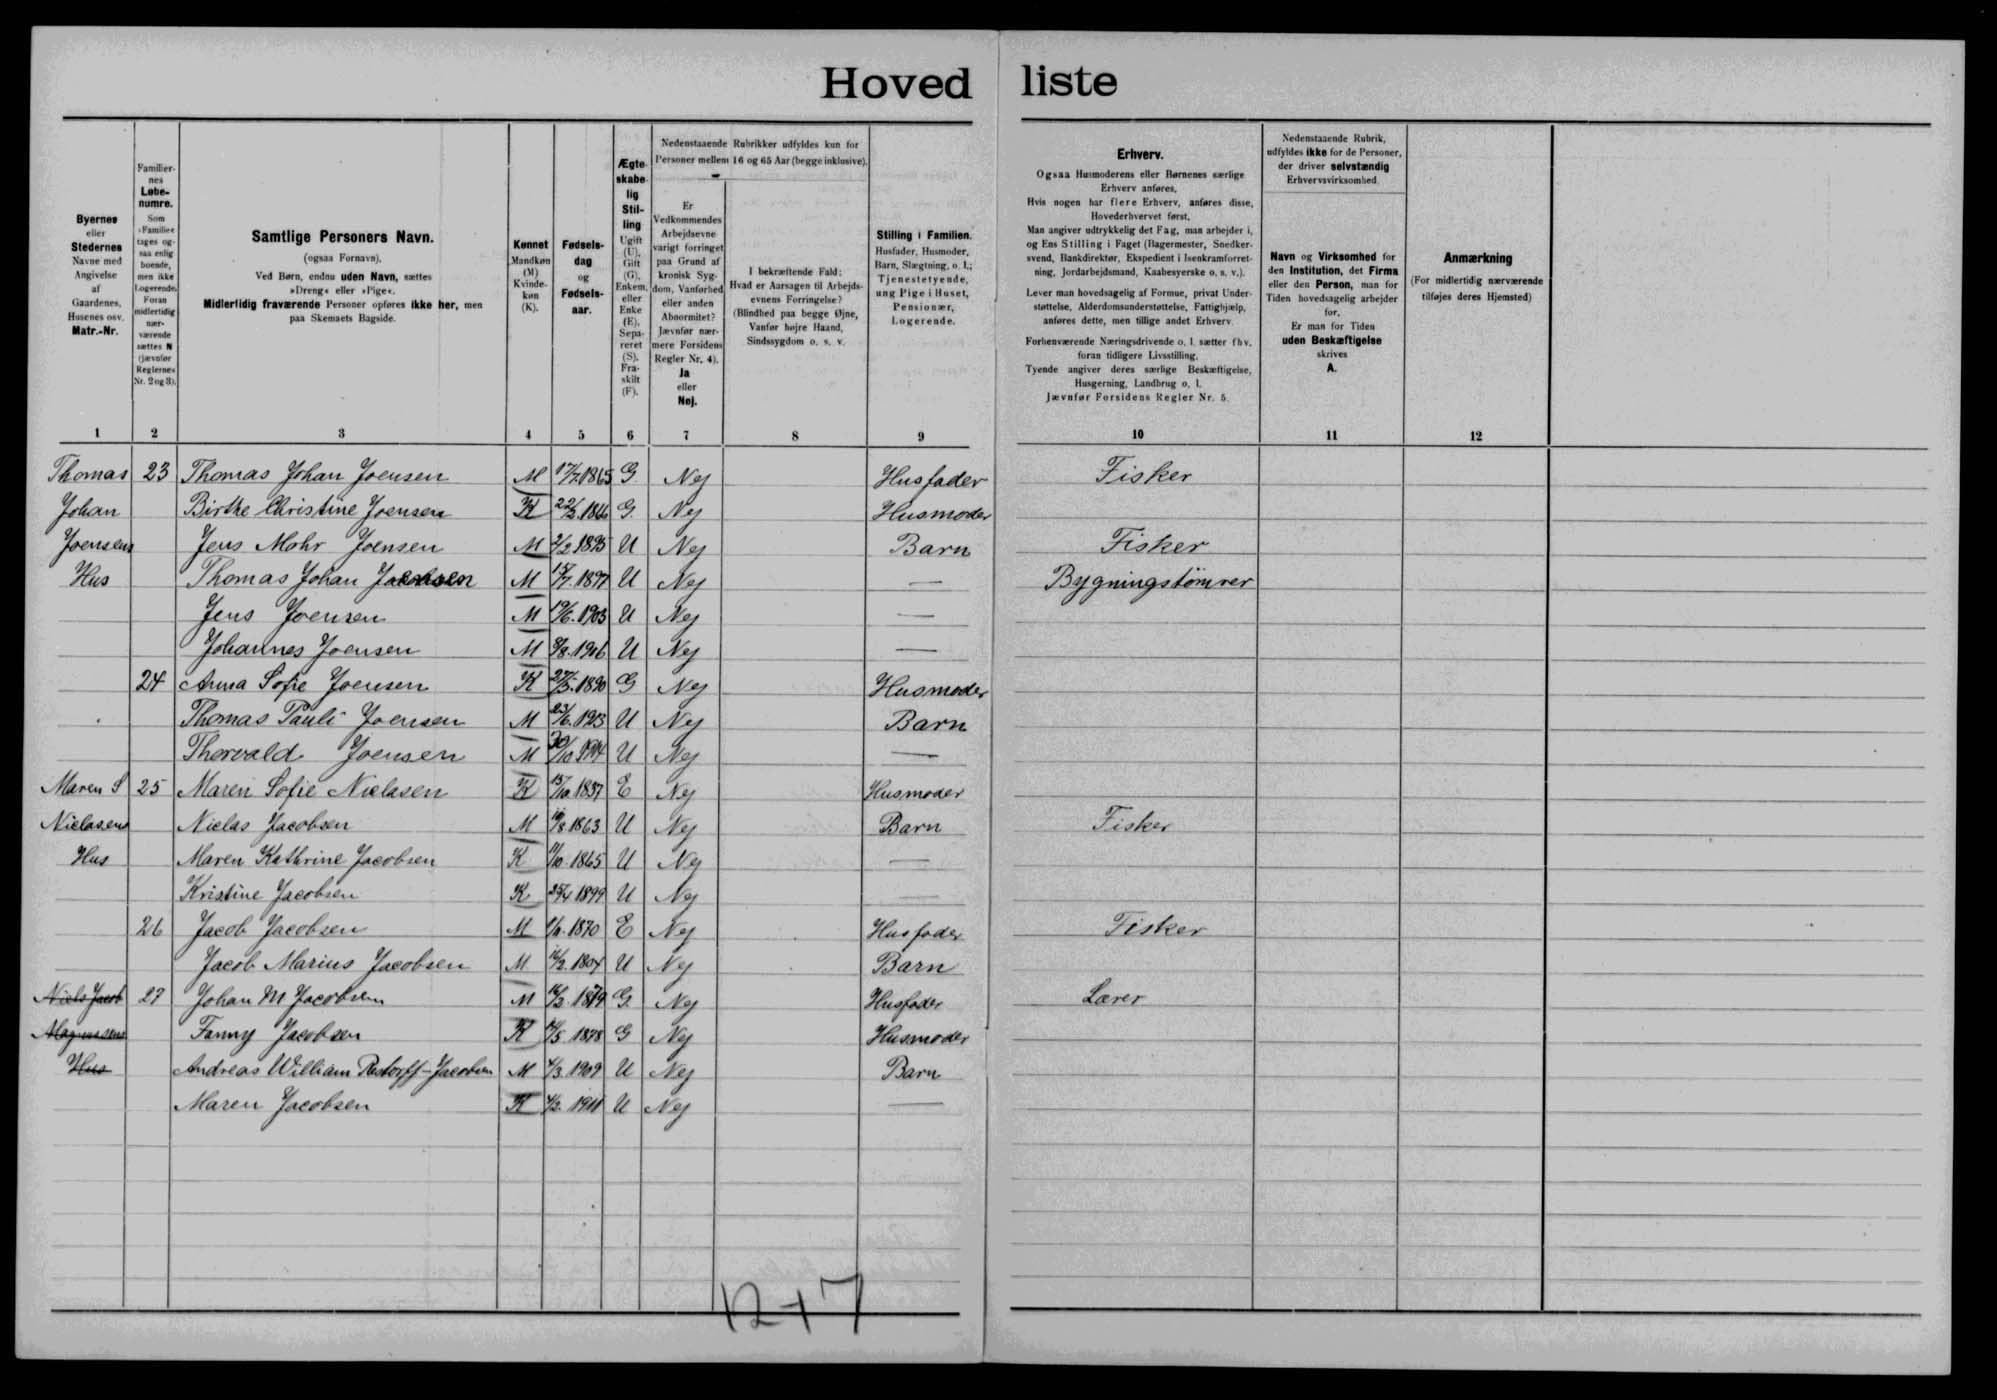 Hoved liste
Byernes eller Stedernes Navne med Angivelse af Gaardenes, Husenes osv. Matr.-Nr.
Familiernes Løbenumre. Som »Familie« tages ogsaa enlig boende, men ikke Logerende. Foran midlertidig nærværende sættes N (jævnfør Reglernes Nr. 2 og 3).
Samtlige Personers Navn.
(ogsaa Fornavn).
Ved Børn, endnu uden Navn, sættes
»Dreng« eller »Pige«.
Midlertidig fraværende Personer opføres ikke her, men
paa Skemaets Bagside.
Kønnet Mandkøn (M) Kvindekøn (K).
Fødselsdag og Fødselsaar.
Ægteskabelig Stilling Ugift (U), Gift (G), Enkem. eller Enke (E), Separeret (S). Fraskilt (F).
Nedenstaaende Rubrikker udfyldes kun for
Personer mellem 16 og 65 Aar (begge inklusive).
Er Vedkommendes Arbejdsevne varigt forringet paa Grund af kronisk Sygdom, Vanførhed eller anden Abnormitet? Jævnfør nærmere Forsidens Regler Nr. 4). Ja eller Nej.
I bekræftende Fald: Hvad er Aarsagen til Arbejdsevnens Forringelse? (Blindhed paa begge Øjne, Vanfør højre Haand, Sindssygdom o. s. v.
Stilling i Familien. Husfader, Husmoder, Barn, Slægtning, o. l.; Tjenestetyende, ung Pige i Huset, Pensionær, Logerende.
Erhverv.
Ogsaa Husmoderens eller Børnenes særlige
Erhverv anføres,
Hvis nogen har flere Erhverv, anføres disse,
Hovederhvervet først.
Man angiver udtrykkelig det Fag, man arbejder i,
og Ens Stilling i Faget (Bagermester, Snedker-
svend, Bankdirektør, Ekspedient i Isenkramforret-
ning, Jordarbejdsmand, Kaabesyerske o. s. v.).
Lever man hovedsagelig af Formue, privat Under-
støttelse, Alderdomsunderstøttelse, Fattighjælp,
anføres dette, men tillige andet Erhverv.
Forhenværende Næringsdrivende o. l. sætter fhv.
foran tidligere Livsstilling.
Tyende angiver deres særlige Beskæftigelse,
Husgerning, Landbrug o. l.
Jævnfør Forsidens Regler Nr. 5.
Nedenstaaende Rubrik,
udfyldes ikke for de Personer,
der driver selvstændig
Erhvervsvirksomhed.
Navn og Virksomhed for
den Institution, det Firma
eller den Person, man for
Tiden hovedsagelig arbejder
for.
Er man for Tiden
uden Beskæftigelse
skrives
A.
Anmærkning
(For midlertidig nærværende
tilføjes deres Hjemsted)
1 2 3 4 5 6 7 8 9 10 11 12
Thomas 23 Thomas Johan Joensen M 17/7.1865 G. Nej Husfader Fisker
Johan Birthe Christine Joensen K 22/3.1866 G. Nej Husmoder
Joensens Jens Mohr Joensen M 2/2 1895 U Nej Barn Fisker
Hus Thomas Johan M 1897 U Nej — Bygningstömrer
Jens Joensen M 19/6.1903 U Nej —
Johannes Joensen M 8/8.1906 U Nej —
24 Anna Sofie Joensen K 27/5.1890 G Nej Husmoder
Thomas Pauli Joensen M 23/6.1913 U Nej Barn
Thorvald Joensen M 30/10 1914 U Nej —
Maren S 25 Maren Sofie Nielasen K 15/10 1837 E Nej Husmoder
Nielasens Nielas Jacobsen M 1863 U Nej Barn Fisker
Hus Maren Kathrine Jacobsen K 1865 U Nej —
Kristine Jacobsen K 25/4 1899 U Nej —
26 Jacob Jacobsen M 1870 E Nej Husfader Fisker
Jacob Marius Jacobsen M U Nej Barn
Niels Jacob 27 Johan M Jacobsen M 1879 G. Nej Husfader Lærer
Magnussens Fanny Jacobsen K 1878 G Nej Husmoder
Hus Andreas William Restorff-Jacobsen M 4/3.1909 U Nej Barn
Maren Jacobsen K 4/2. 1911 U Nej —
12+7